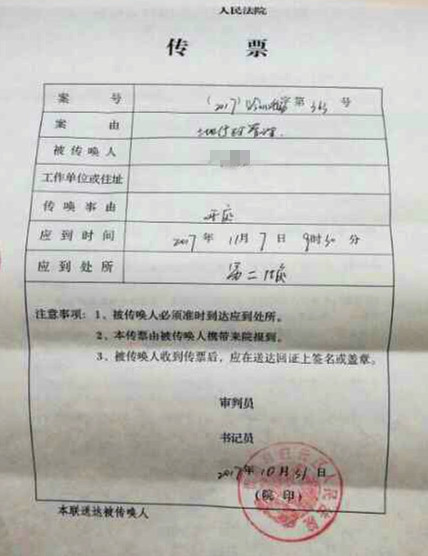 人民法院
传 票
案号 (2017) 第 365 号
案由 土地行政管理
被传唤人
工作单位或住址
传唤事由 开庭
应到时间 2017年 11月 7日 9时30分
应到处所 第二法庭
注意事项: 1、被传唤人必须准时到达应到处所。
2、本传票由被传唤人携带来院报到。
3、被传唤人收到传票后,应在送达回证上签名或盖章。
审判员
书记员
2017年 10月 31日
(院 印)
本联送达被传唤人